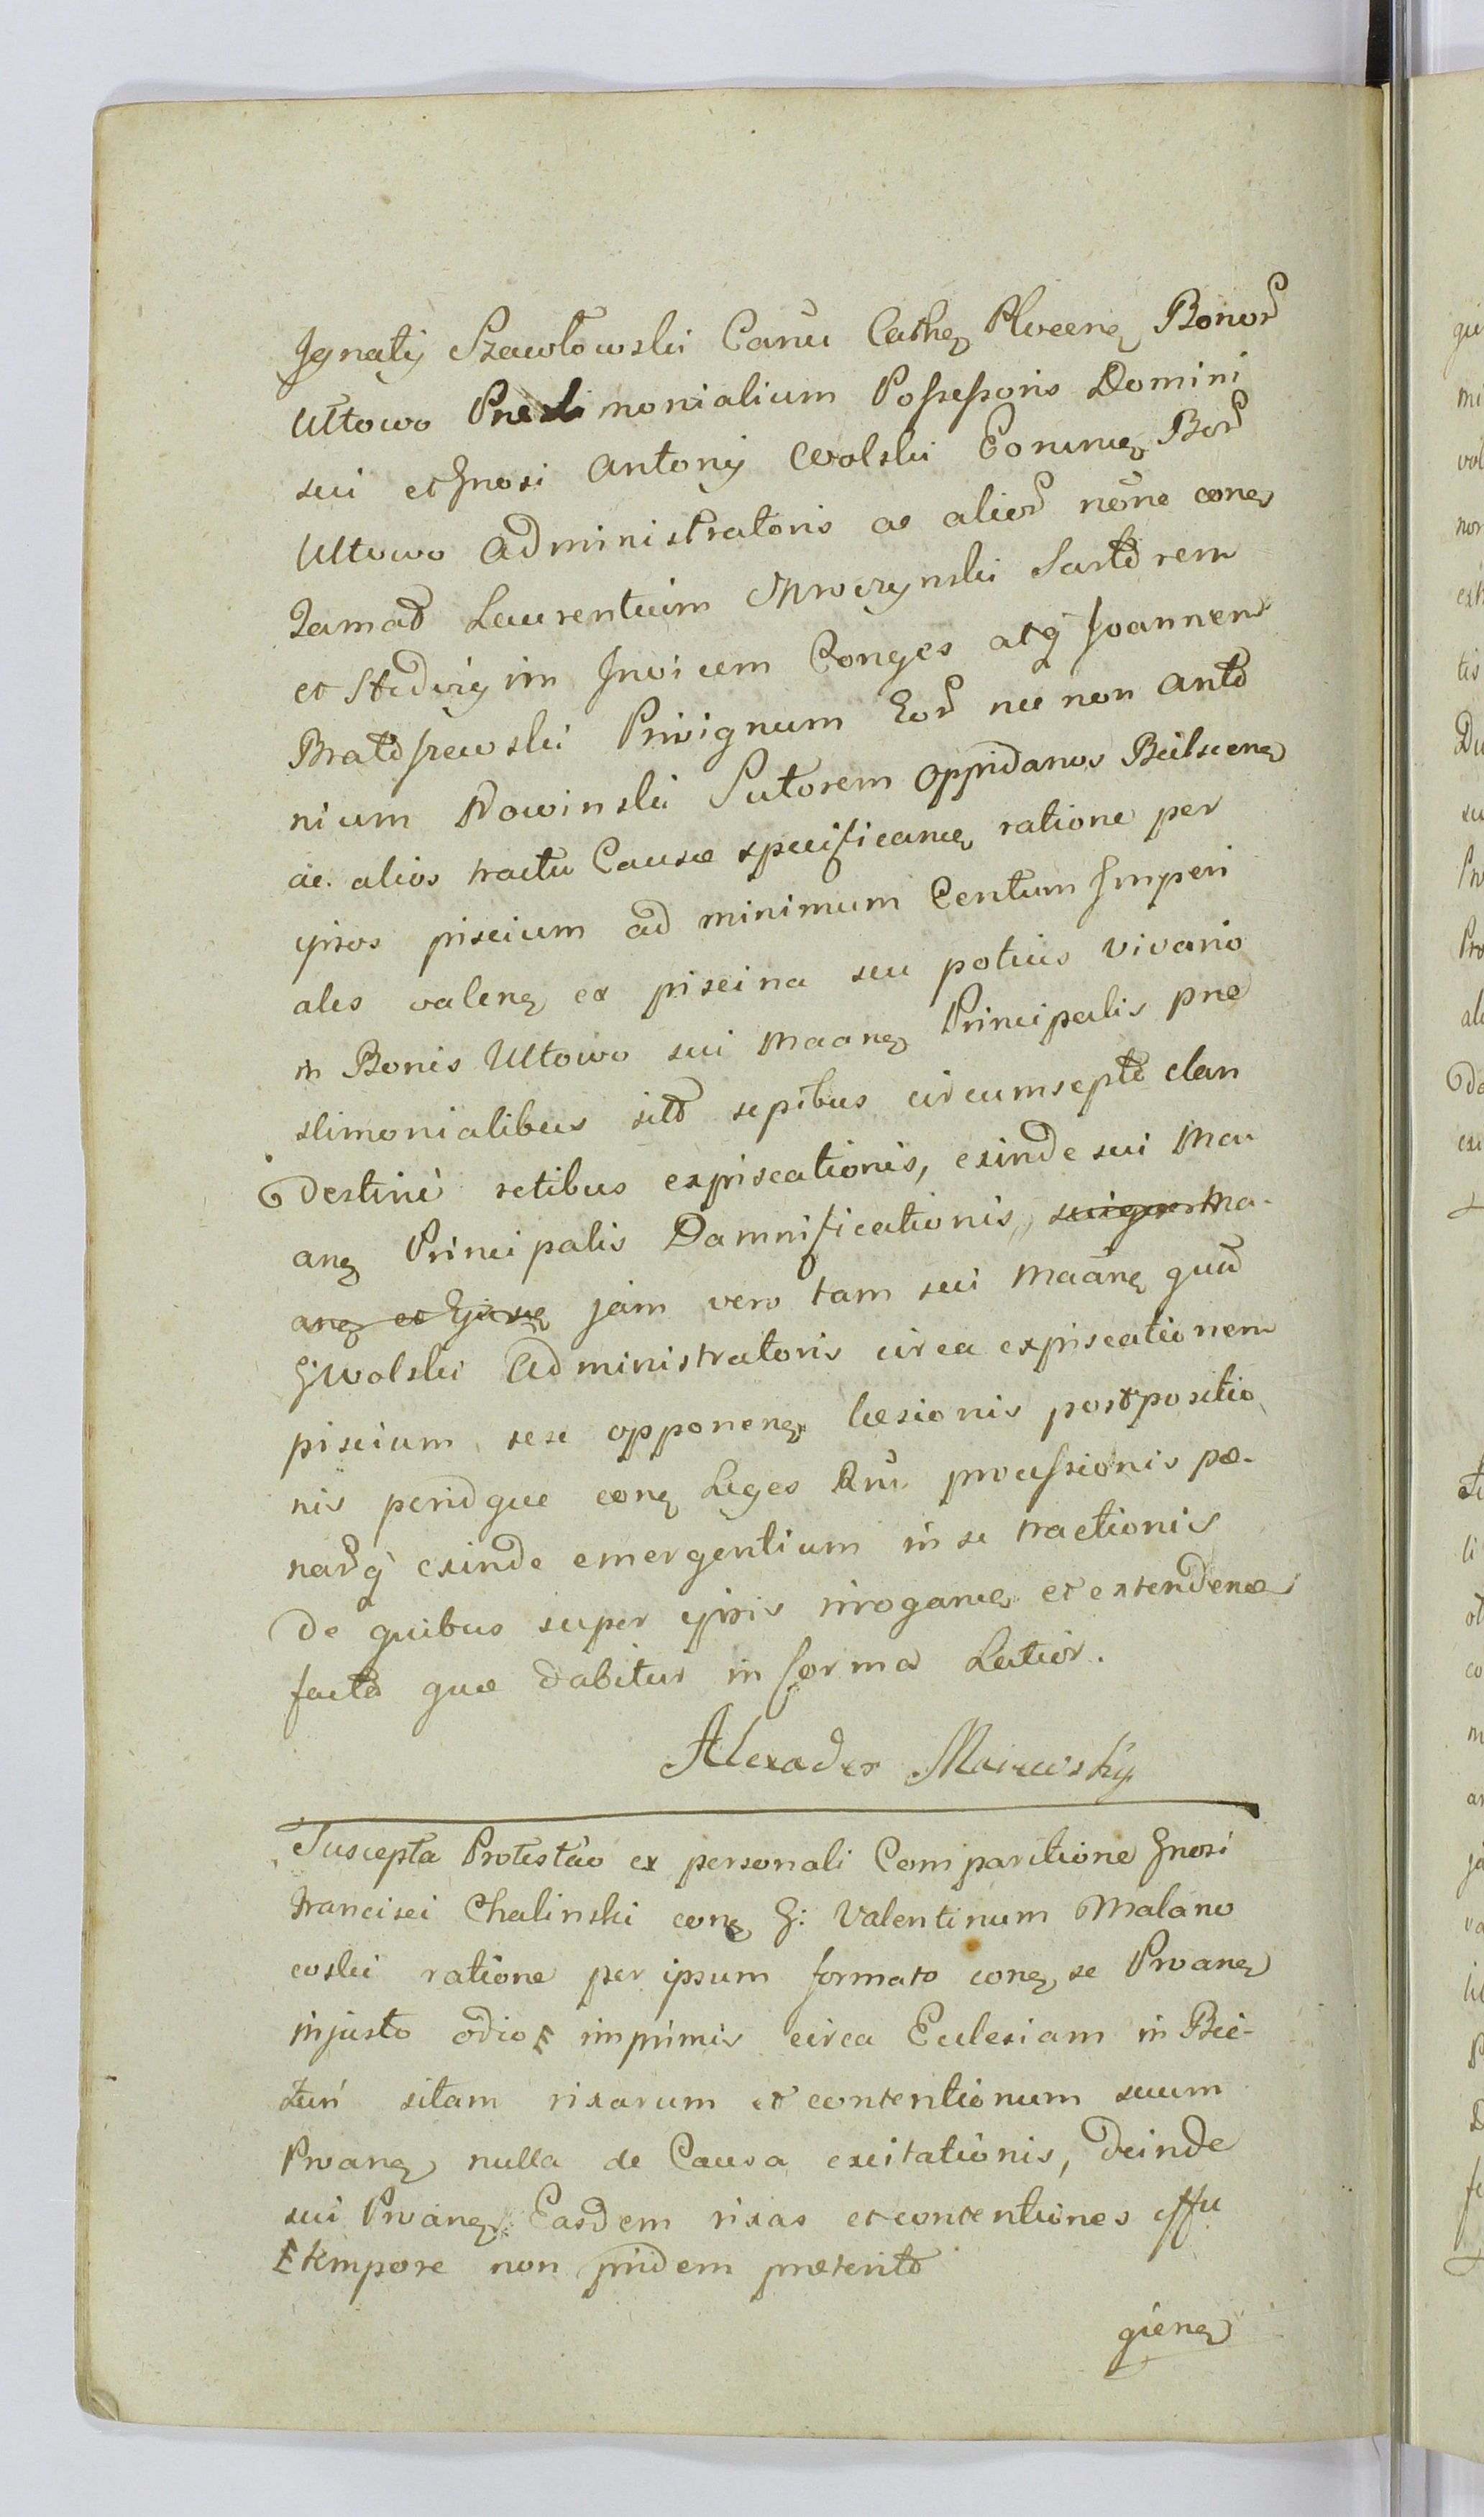 Ignatij Szawłowski Canci Cathez Plocenz Bonor
Ułtowo Prestimonialium Possessoris Domini
sui et Gnosi Antonij Wolski Eorumz Bor
Ułtowo Administratoris ac alior nōne conez
Famat Laurentium Mroczynski Sartorem
et Hedvigim Invicem Conges atq Joannem
Bratoszewski Privignum Eor nec non Anto
nium Nowinski Sutorem oppidanos Bielscenz
ac alios tractu Causæ specificancz ratione per
ipsos piscium ad minimum Centum Imperi
ales valenz ex piscina seu potius vivario
in Bonis Ułtowo sui Maanz Principalis præ
stimonialibus sito sepibus circumsepto clan
destine retibus expiscationis, exinde sui Ma-
anz Principalis Damnificationis, suique Ma-
anz et Ejusz jam vero tam sui Maanz qua
G Wolski Administratoris circa expiscationem
piscium sese opponenz læsionis postpositio
nis pœnarque conz Leges Rni processionis pœ-
narq exinde emergentium in se tractionis
de quibus super ipsis irrogancz et extendencz
facto quæ dabitur in forma Latior.
Alexader Maiewsky
Suscepta Protestao ex personali Comparitione Gnosi
Francisci Chalinski conz G: Valentinum Malano
wski ratione per ipsum formato conz se Proanz
injusto odio imprimis circa Ecclesiam in Bie-
żuń sitam rixarum et contentionum suum
Proanz nulla de Causa excitationis, deinde
sui Proanz Easdem rixas et contentiones effu
tempore non pridem præterito
gienz